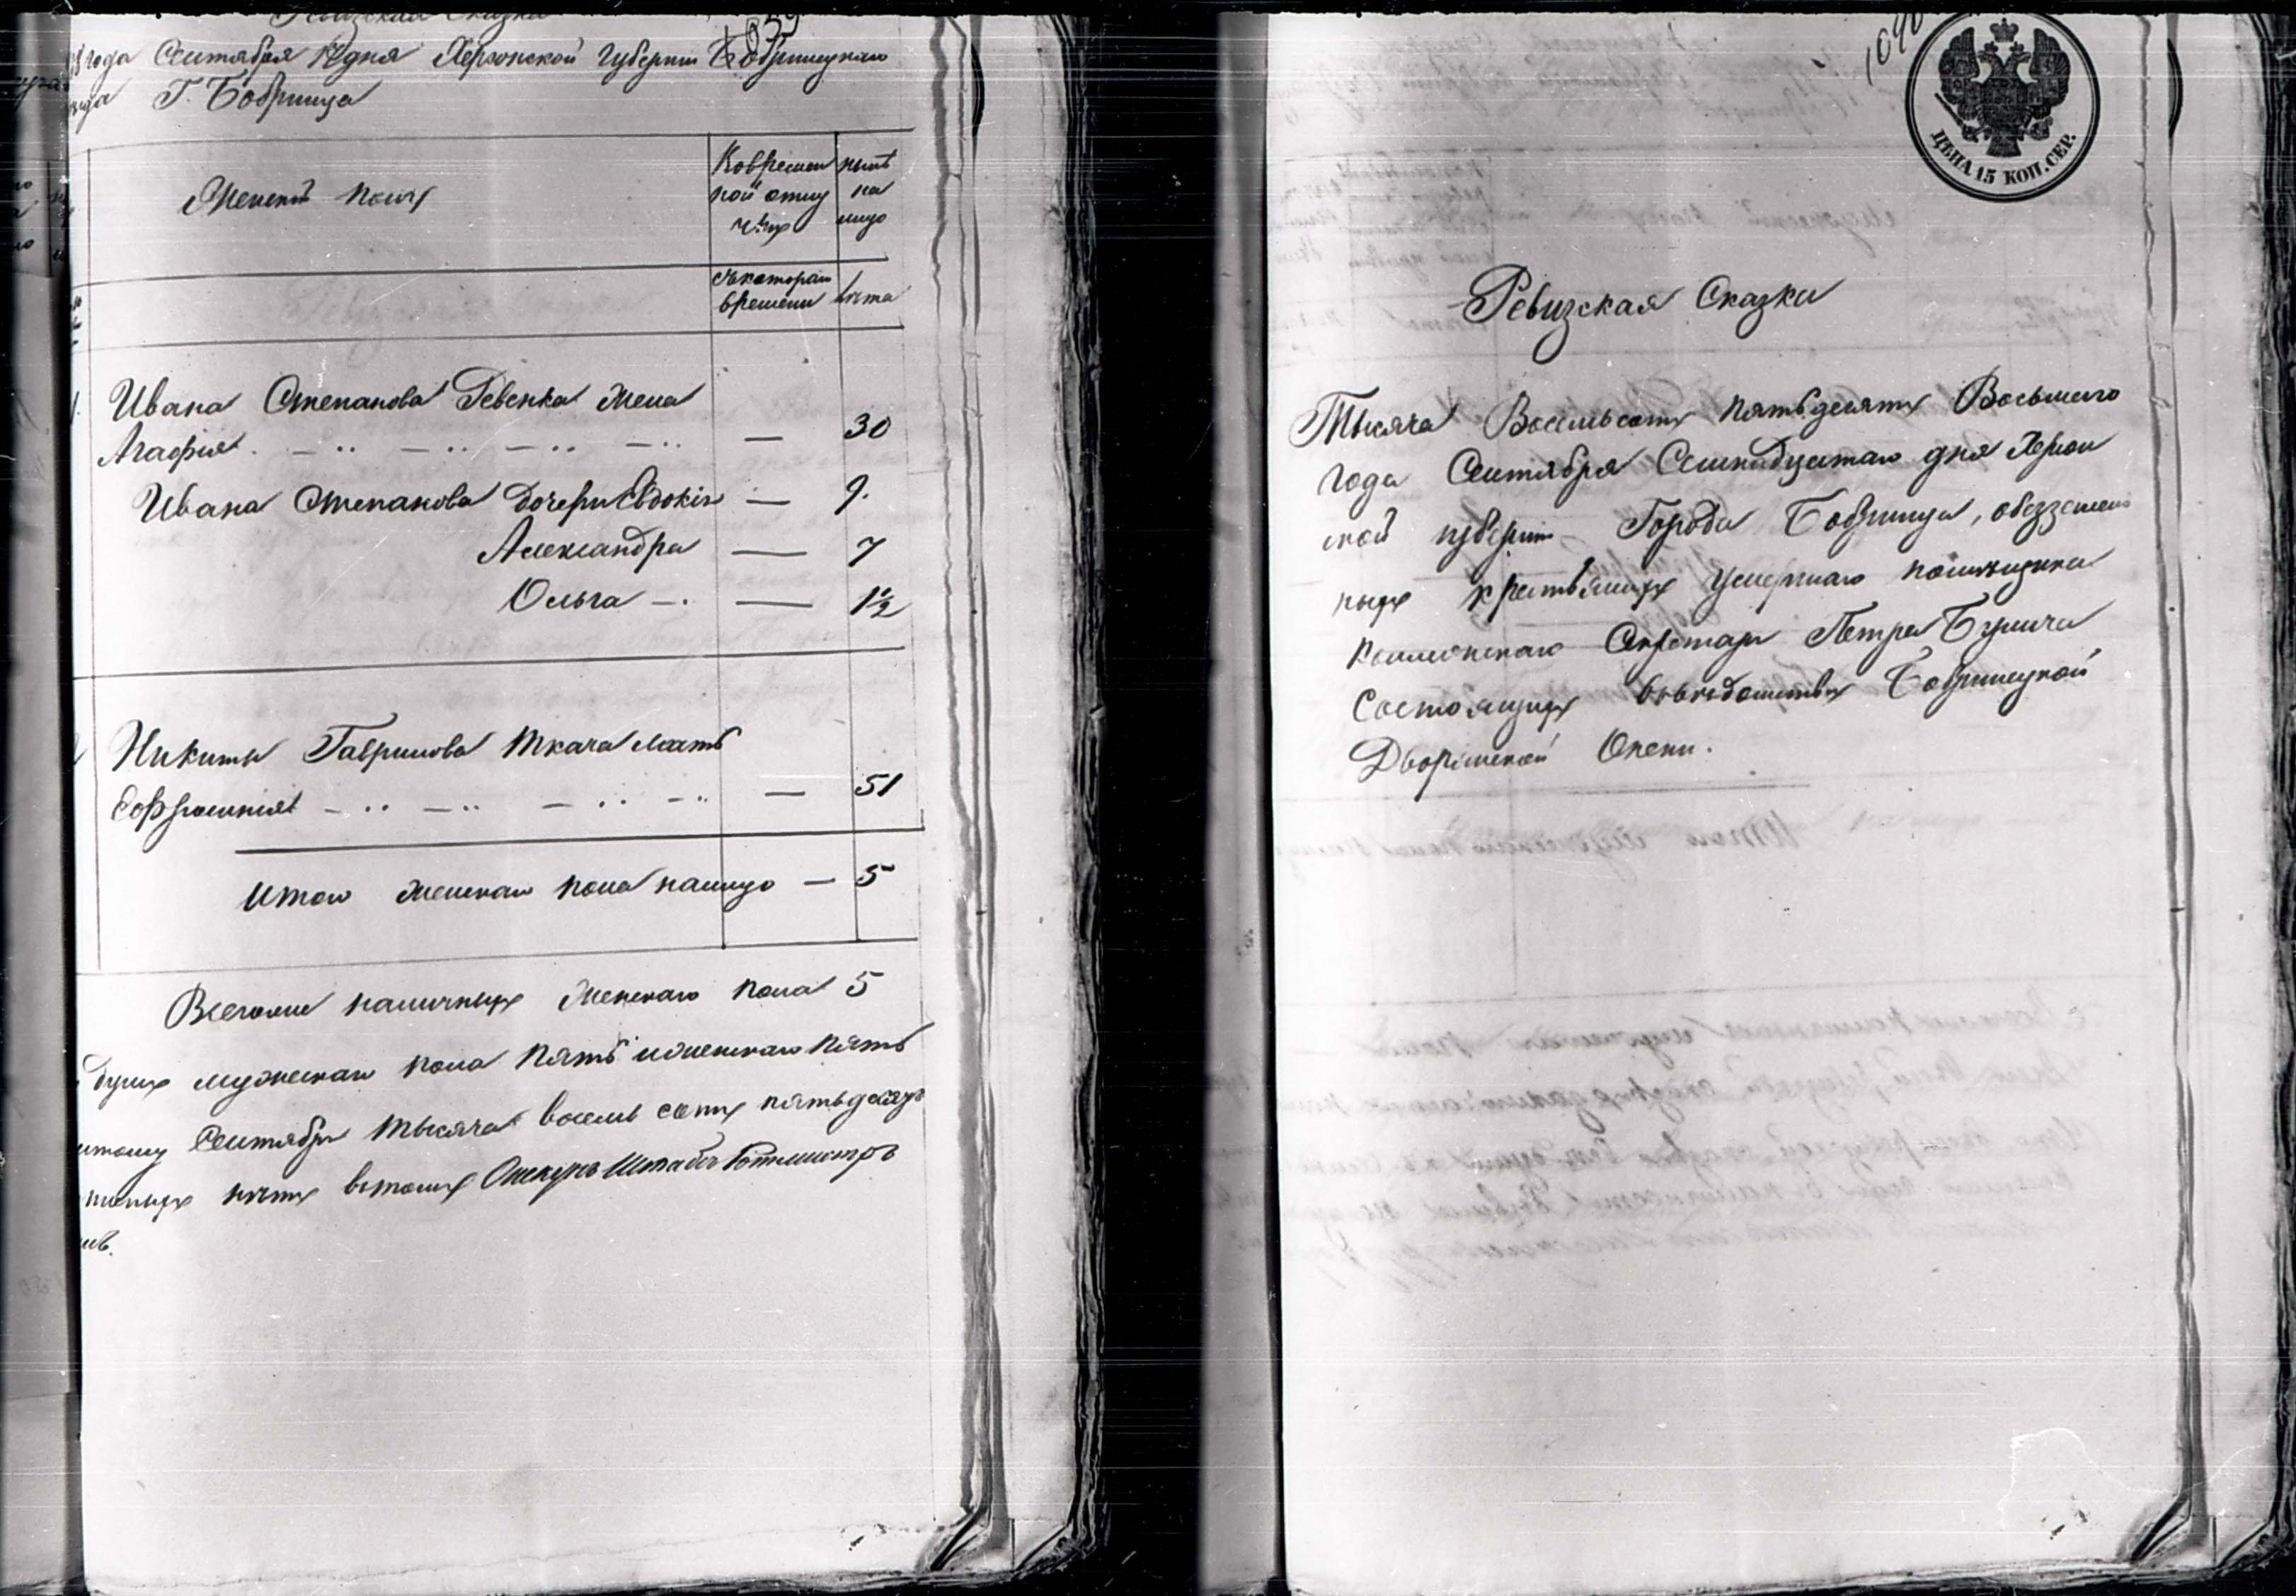 Ревизская Сказка
1039
года Сентября 17 дня Херсонской Губернии Бобринецкаго
Г. Бобринца
Женскій полъ
Во времен
ной отлу
чкѣ
нынѣ
на
лицо
Съ котораго
времени
лѣта
Ивана Степанова Ревенка жена
Агафия — 30
Ивана Степанова дочери Евдокія — 9.
Александра — 7
Ольга — 1½
Никиты Гаврилова Ткача мать
Ефросинія — 51
Итого женскаго пола налицо — 5
Всего наличныхъ женскаго пола 5
душъ мужескаго пола пять и женскаго пять
Сентября тысяча восемь сотъ пятьдесятъ
нѣтъ въ томъ Опекунъ Штабсъ Ротмистръ
въ.
ЦѢНА 15 КОП. СЕР.
Ревизская Сказка
Тысяча Восемьсотъ пятьдесятъ Восьмаго
года Сентября Семнадцатаго дня Херсон
ской губерніи Города Бобринца, обезземелен
ныхъ крестьянъ умершаго помѣщика
Коллежскаго Секретаря Петра
Состоящихъ въ вѣдомствѣ Бобринецкой
Дворянской Опеки.